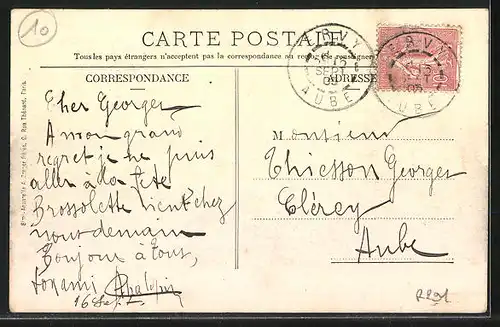 10
CARTE POSTALE
Tous les pays étrangers n'acceptent pas la correspondance au recto, se renseigner
CORRESPONDANCE
ADRESSE
ERVY
SEPT
AUBE
ERVY
AUBE
10
Cher Georges
A mon grand
regret je ne puis
aller à la fête
Brossolette vient chez
nous demain
Bonjour à tous,
ton ami
16 Sept
Monsieur
Thiesson Georges
Clérey
Aube